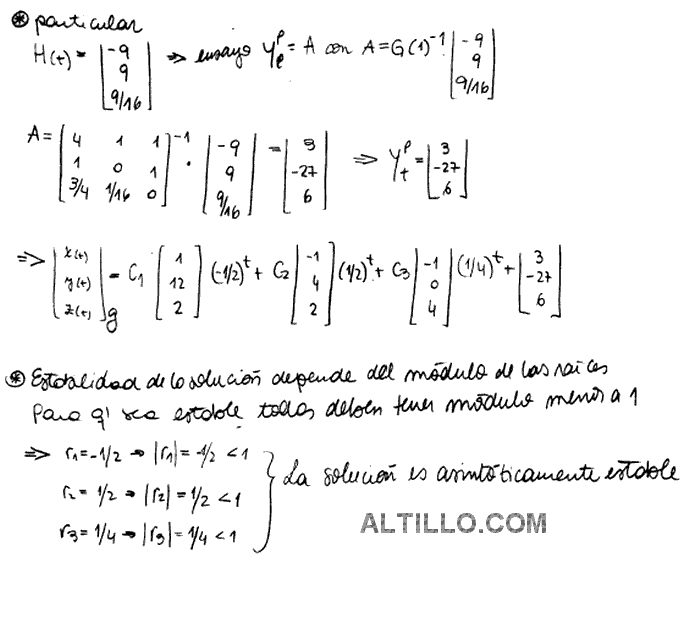 ⊛ particular
H(t) = [-9 9 9/16] ⇒ ensayo Y_t^p = A con A = G(1)^-1 · [-9 9 9/16]
A = [4 1 1; 1 0 1; 3/4 1/16 0]^-1 · [-9 9 9/16] = [3 -27 6] ⇒ Y_t^p = [3 -27 6]
⇒ [x(t) y(t) z(t)]g = C1 [1 12 2] (-1/2)^t + C2 [-1 4 2] (1/2)^t + C3 [-1 0 4] (1/4)^t + [3 -27 6]
⊛ Estabilidad de la solución depende del módulo de las raíces
Para q' sea estable todas deben tener módulo menor a 1
⇒ r1 = -1/2 → |r1| = -1/2 < 1
r2 = 1/2 → |r2| = 1/2 < 1 } La solución es asintóticamente estable
r3 = 1/4 → |r3| = 1/4 < 1
ALTILLO.COM